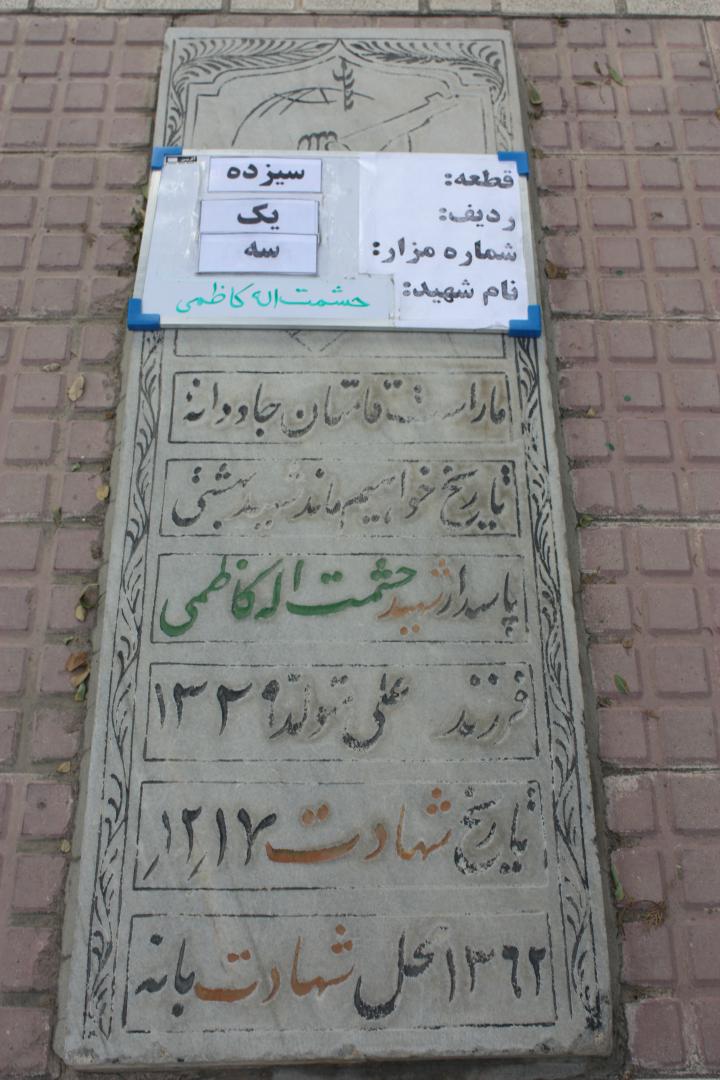 قطعه: سیزده
ردیف: یک
شماره مزار: سه
نام شهید: حشمت اله کاظمی
ماراست قامتان جاودانهٔ
تاریخ خواهیم ماند شهید بهشتی
پاسدار شهید حشمت اله کاظمی
فرزند علی تولد ۱۳۳۹
تاریخ شهادت ۱۲٫۱۷٫
۱۳۶۲ محل شهادت بانه